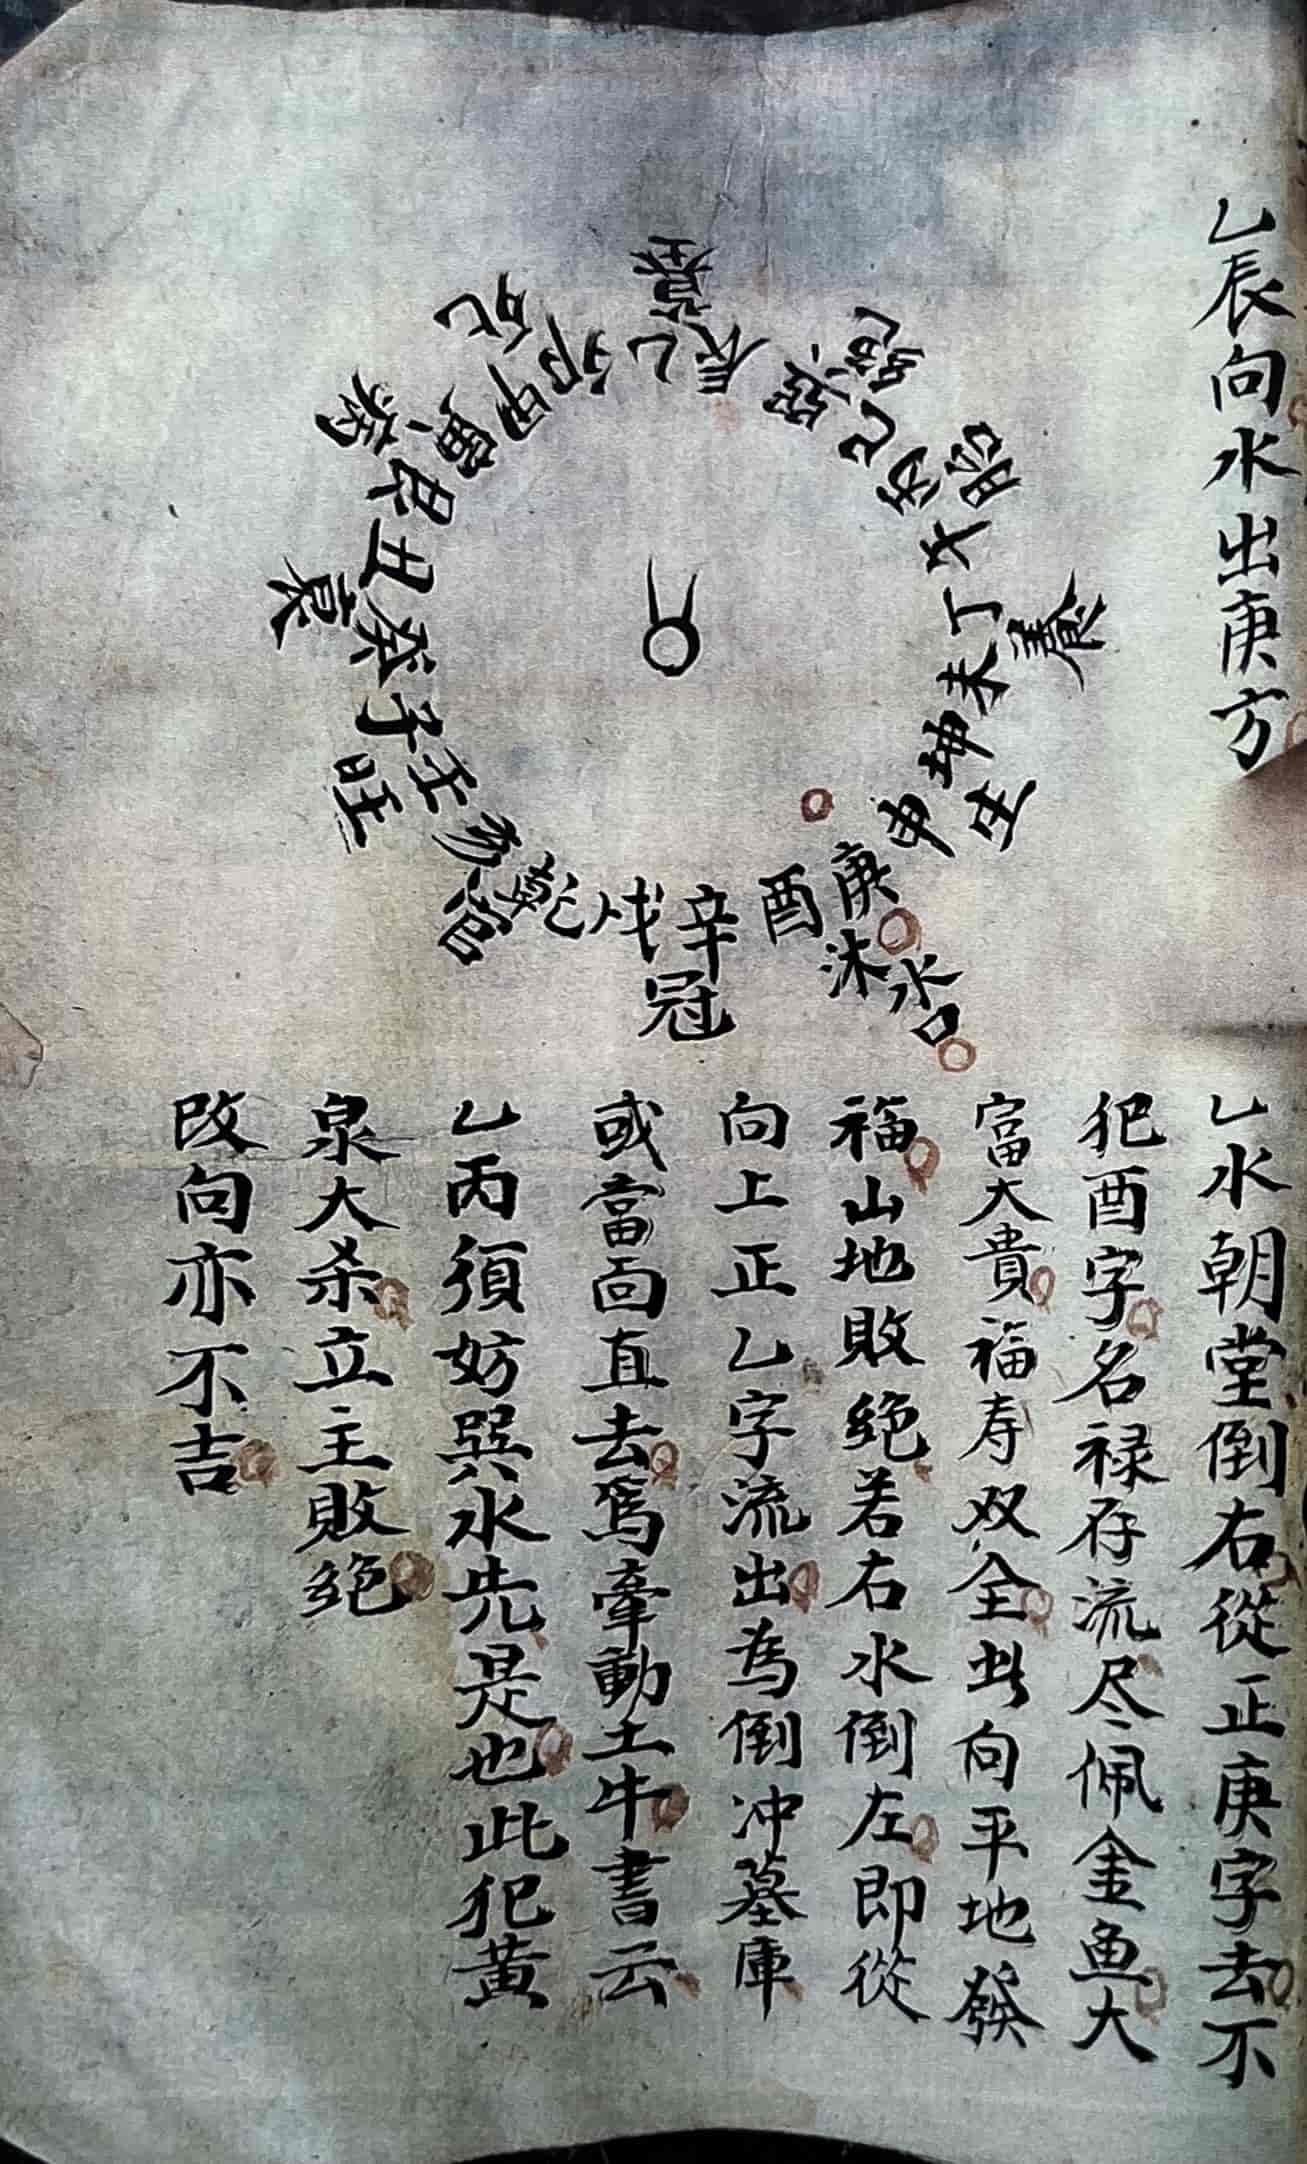 乙辰向水出庚方
墓
乙辰
絶
巽巳
胎
丙午
養
丁未
生
坤申
沐
庚酉
水口
冠
辛戌
官
乾亥
旺
壬子
衰
癸丑
病
艮寅
死
甲卯
乙水朝堂倒右從正庚字去不
犯酉字名禄存流尽佩金鱼大
富大貴福寿双全此向平地發
福山地敗絶若右水倒左即從
向上正乙字流出為倒冲墓庫
或當面直去為牽動土牛書云
乙丙須妨巽水先是也此犯黄
泉大杀立主敗絶
改向亦不吉